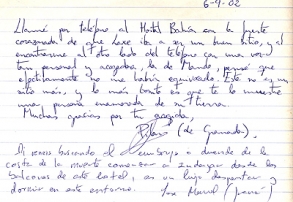 6-9-02
Llamé por teléfono al Hotel Bahía con la fuerte
corazonada de que Laxe iba a ser un buen sitio, y al
encontrarme al otro lado del teléfono con una voz
tan personal y acogedora, la de Mando, pensé que
efectivamente no me había equivocado. Este no es un
sitio más, y lo más bonito es que te lo muestre
una persona enamorada de su tierra.
Muchas gracias por tu acogida,
(de Granada).
Si vienes buscando el o duende de la
costa de la muerte comenzar a indagar desde los
balcones de este hotel, es un lujo despertar y
dormir en este entorno.